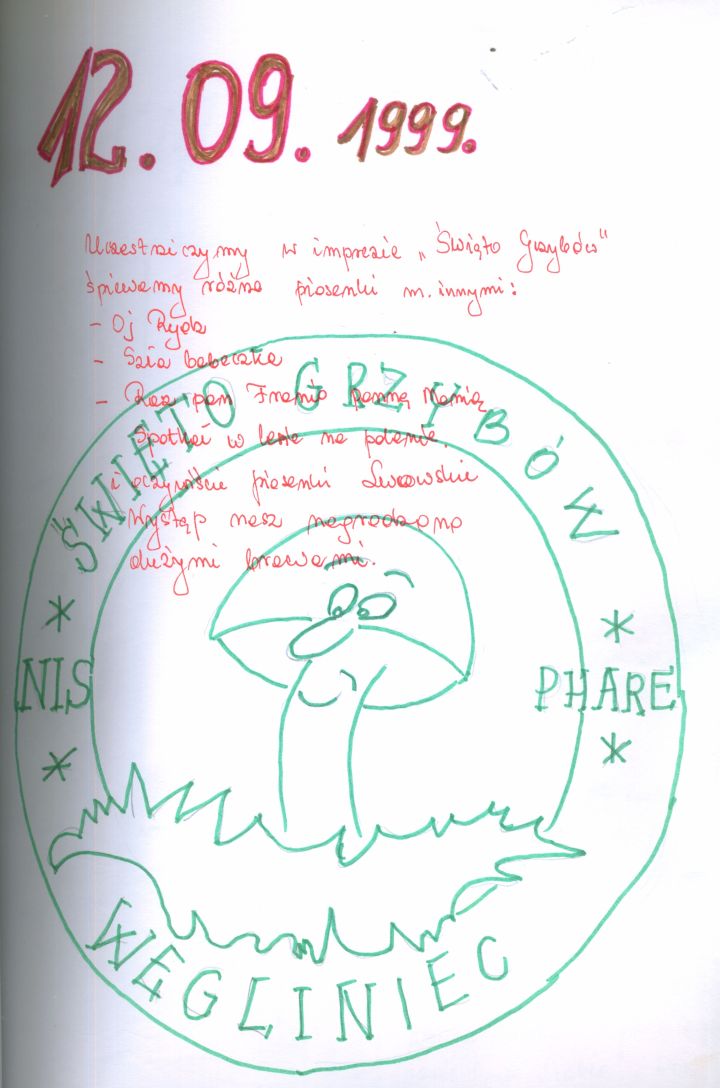 12. 09. 1999.
Uczestniczymy w imprezie „Święto Grzybów"
śpiewamy różne piosenki m. innymi:
- Oj Ryda
- Szła babeczka
- Raz pan Franio pannę Manię
spotkał w lesie na polanie.
i oczywiście piosenki Lwowskie
Występ nasz nagrodzono
dużymi brawami.
ŚWIĘTO GRZYBÓW
* NIS *
* PHARE *
WĘGLINIEC